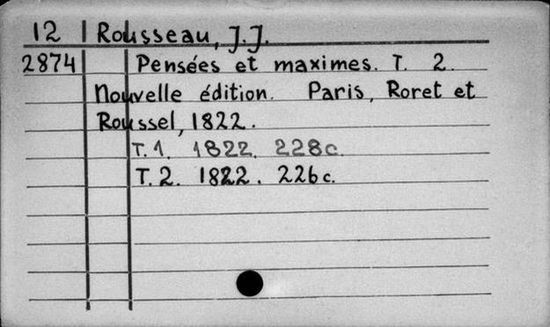 12 Rousseau, J.J.
2874 Pensées et maximes. T. 2.
Nouvelle édition. Paris, Roret et
Roussel, 1822.
T. 1. 1822. 228 c.
T. 2. 1822. 226 c.